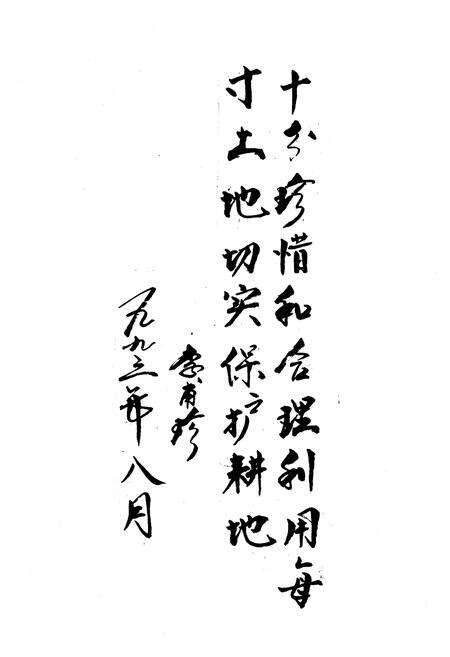 十分珍惜和合理利用每
寸土地切实保护耕地
李有珍
一九九三年八月